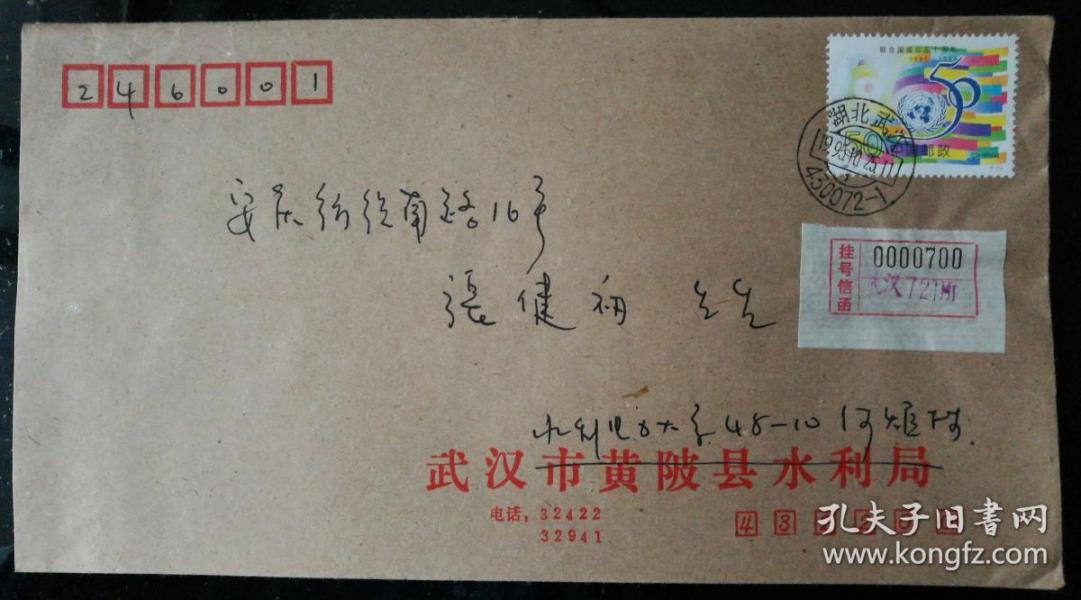 246001
联合国成立五十周年
1945 1995
50
湖北武汉
1995.10.25.11
430072-1
邮政
安庆纺织南路16号
挂号信函
0000700
武汉721支
張健初 先生
水利电力大学 48-10 何
武汉市黄陂县水利局
电话:32422
32941
43
孔夫子旧书网
www.kongfz.com